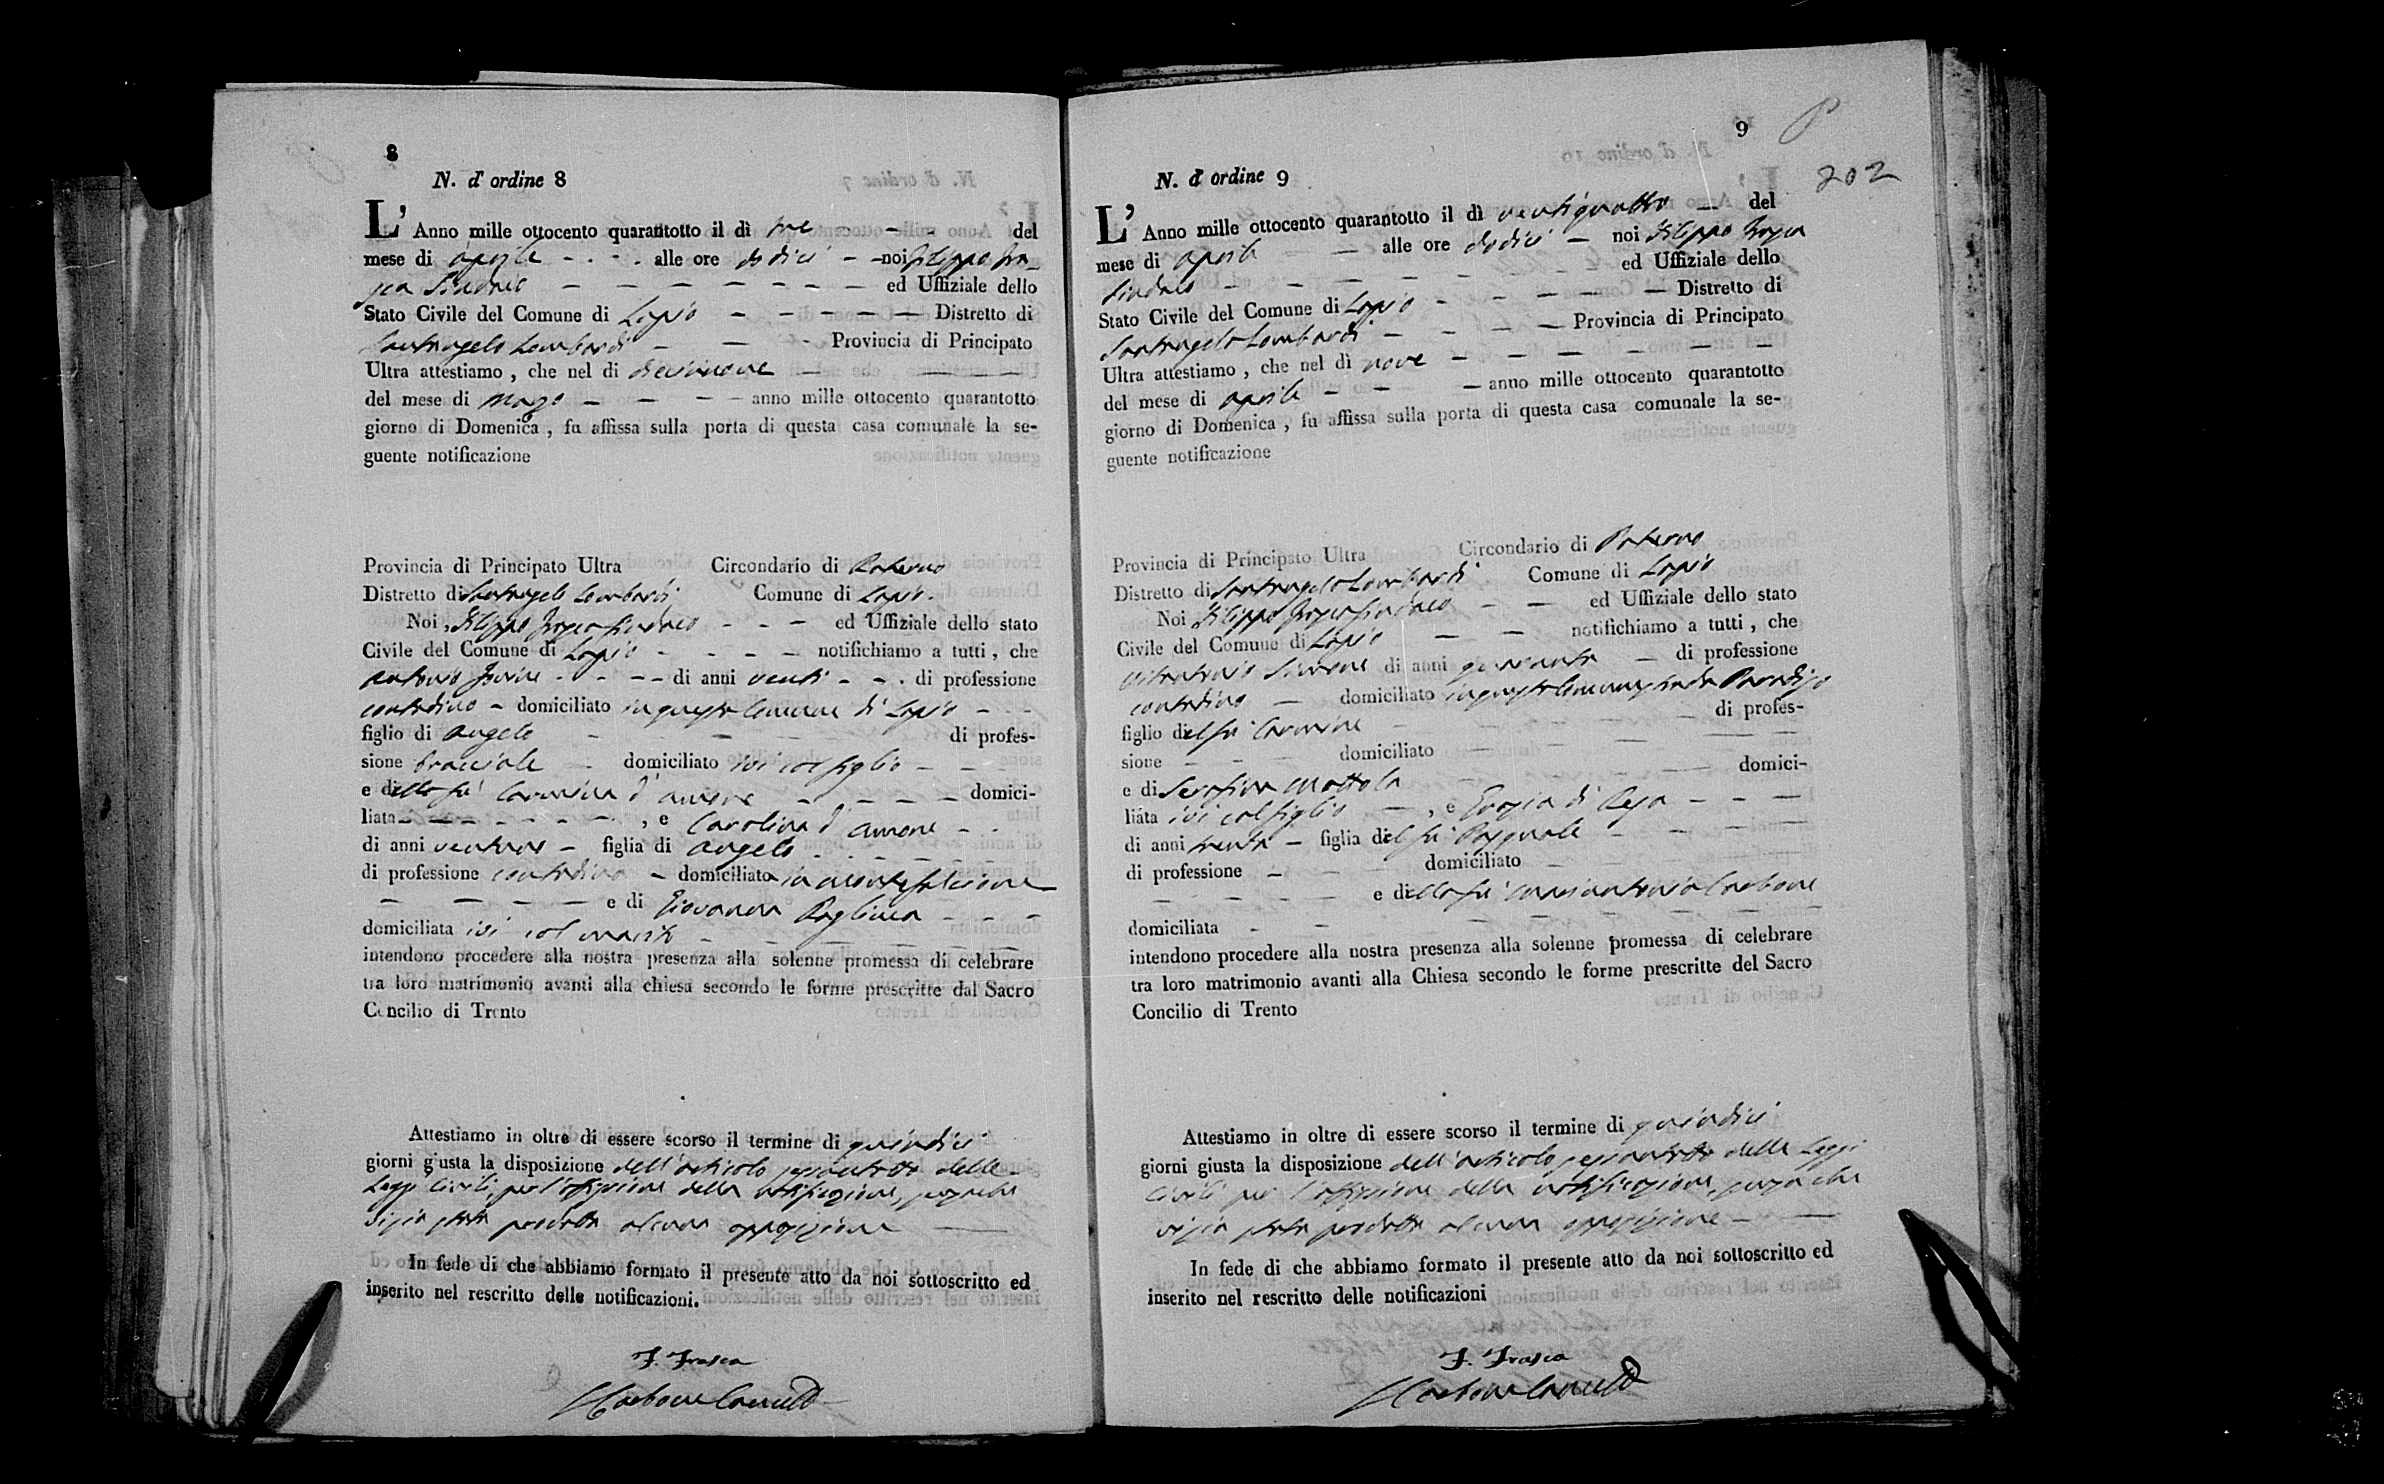 8
N. d' ordine 8
L' Anno mille ottocento quarantotto il dì tre del
mese di aprile alle ore dodici noi Filippo Fra-
sca Sindaco ed Uffiziale dello
Stato Civile del Comune di Lapio Distretto di
Santangelo Lombardi Provincia di Principato
Ultra attestiamo , che nel di diecinnove
del mese di Marzo anno mille ottocento quarantotto
giorno di Domenica , fu affissa sulla porta di questa casa comunale la se-
guente notificazione
Provincia di Principato Ultra Circondario di Paterno
Distretto di Santangelo Lombardi Comune di Lapio.
Noi Filippo Frasca Sindaco ed Uffiziale dello stato
Civile del Comune di Lapio notifichiamo a tutti , che
Antonio di anni venti di professione
contadino domiciliato in questo Comune di Lapio
figlio di Angelo di profes-
sione bracciale domiciliato ivi col figlio
e della fu Carmina d'Amore domici-
liata , e Carolina d'Amore
di anni figlia di Angelo
di professione contadino domiciliato in Montefalcione
e di Giovanna Pagliuca
domiciliata ivi col marito
intendono procedere alla nostra presenza alla solenne promessa di celebrare
tra loro matrimonio avanti alla chiesa secondo le forme prescritte dal Sacro
Concilio di Trento
Attestiamo in oltre di essere scorso il termine di quindici
giorni giusta la disposizione dell'articolo sessantotto delle
Leggi Civili, per l'affissione della notificazione, senza che
vi sia stata prodotta alcuna opposizione
In fede di che abbiamo formato il presente atto da noi sottoscritto ed
inserito nel rescritto delle notificazioni.
F. Frasca
Carbone
9
202
N. d' ordine 9
L' Anno mille ottocento quarantotto il dì ventiquattro del
mese di aprile alle ore dodici noi Filippo Frasca
Sindaco ed Uffiziale dello
Stato Civile del Comune di Lapio Distretto di
Santangelo Lombardi Provincia di Principato
Ultra attestiamo , che nel dì nove
del mese di aprile anno mille ottocento quarantotto
giorno di Domenica , fu affissa sulla porta di questa casa comunale la se-
guente notificazione
Provincia di Principato Ultra Circondario di Paterno
Distretto di Santangelo Lombardi Comune di Lapio
Noi Filippo Frasca Sindaco ed Uffiziale dello stato
Civile del Comune di Lapio notifichiamo a tutti , che
di anni quaranta di professione
contadino domiciliato in questo Comune strada Paradiso
figlio del fu Carmine di profes-
sione domiciliato
e di Serafina Mottola domici-
liata ivi col figlio , e
di anni trenta figlia del fu Pasquale
di professione domiciliato
e della fu Mariantonia Carbone
domiciliata
intendono procedere alla nostra presenza alla solenne promessa di celebrare
tra loro matrimonio avanti alla Chiesa secondo le forme prescritte del Sacro
Concilio di Trento
Attestiamo in oltre di essere scorso il termine di quindici
giorni giusta la disposizione dell'articolo sessantotto delle Leggi
Civili per l'affissione della notificazione, senza che
vi sia stata prodotta alcuna opposizione
In fede di che abbiamo formato il presente atto da noi sottoscritto ed
inserito nel rescritto delle notificazioni
F. Frasca
Carbone